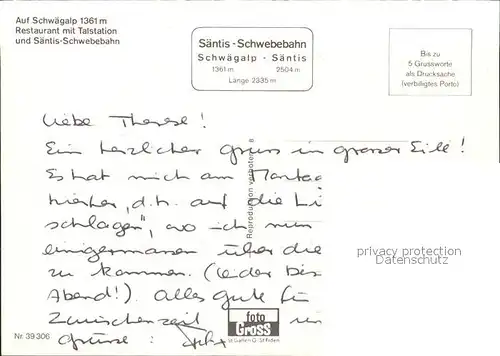 Auf Schwägalp 1361 m
Restaurant mit Talstation
und Säntis-Schwebebahn
Säntis-Schwebebahn
Schwägalp - Säntis
1361 m 2504 m
Länge 2335 m
Bis zu
5 Grussworte
als Drucksache
(verbilligtes Porto)
Liebe Therese!
Ein herzlicher Gruss in grosser Eile!
Es hat mich am Montag
hierher, d.h. auf die
schlagen", wo ich nun
einigermassen über die
zu kommen. (leider bis
Abend!). Alles gute für
Zwischenzeit
Grüsse:
Reproduktion verboten
privacy protection
Datenschutz
foto
GROSS
St. Gallen
Nr. 39 306